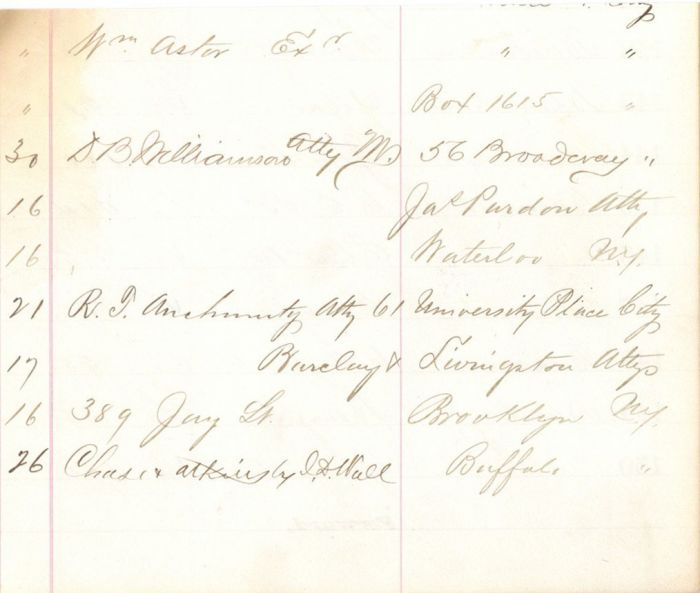 City
" Wm Astor Exr " "
" Box 1615 "
30 D B Williamson Atty 56 Broadway "
16 Jas Purdon Atty
16 Waterloo N.Y.
21 R. T. Auchmuty Atty 61 University Place City
17 Barclay & Livingston Attys
16 389 Jay St. Brooklyn N.Y.
26 Chase & Atkins by J. D. Wall Buffalo "